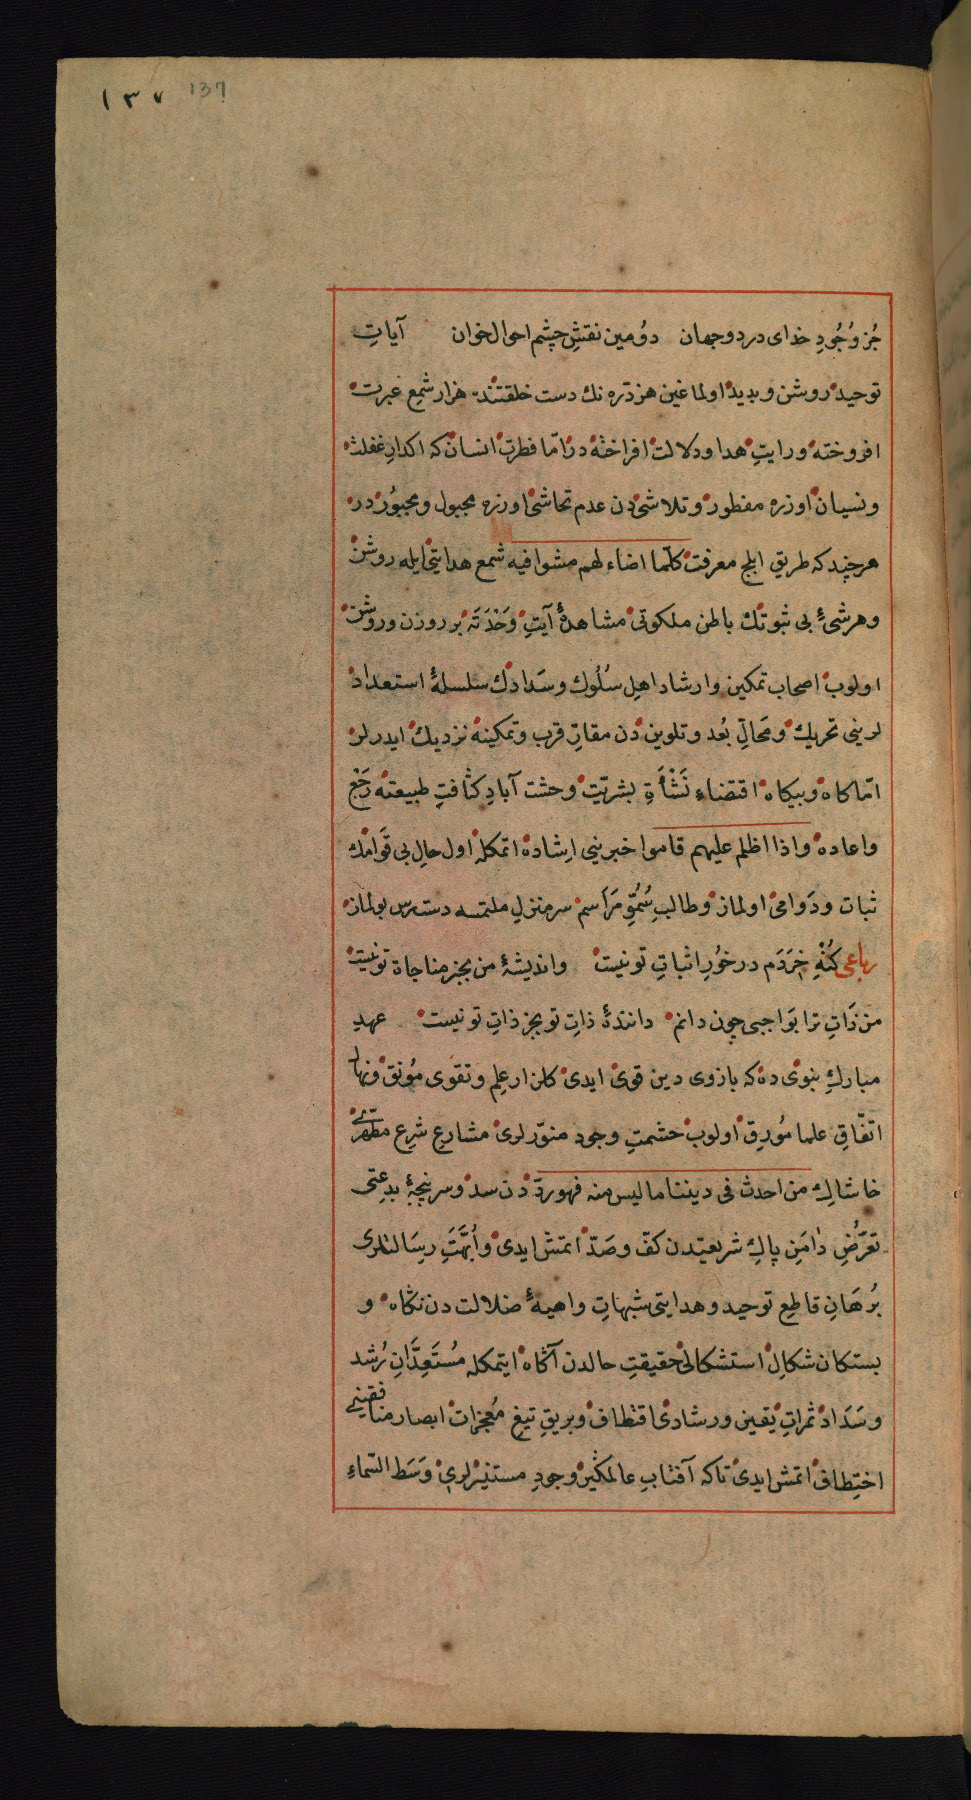 ١٣٧ 137
جُز وُجُودِ خدای در دو جهان دوُمین نقشِ چشم احوال خوان آیاتِ
توحید روشن و بدید اولماغین هر ذرّه نك دست خلقتنده هزار شمع عبرت
افروخته و رایتِ هدا و دلالت افراخته در امّا فطرت انسان که اکدارِ غفلت
و نسیان اوزره مفطور و تلاشی دن عدم تحاشی اوزره مجبول و مجبوُر در
هر چند که طریق ابلج معرفت کلّما اضاء لهم مشوا فیه شمع هدایتی ایله روشن
و هر شئِ بی ثبوتك باطن ملکوتی مشاهدهٔ آیتِ وَحْدَتَه بر روزن و روشن
اولوب اصحاب تمکین و ارشاد اهل سُلُوك و سَدادك سلسلهٔ استعداد
لرینی تحریك و مَحالِّ بُعد و تلوین دن مقارِّ قرب و تمکینه نزدیك ایدرلر
امّا کاه و بیکاه اقتضاءِ نَشْأَةِ بشریّت وحشت آبادِ کثافتِ طبیعته رَجْع
و اعاده و اذا اظلم علیهم قاموا خبرینی اشاده اتمکله اول حالِ بی قَوامك
ثبات و دَوامی اولماز و طالبِ سُمُوِّ مَرَاسم سر منزلِ ملتمسه دسترس بولماز
رباعی کُنْهِ خِرَدَم در خُورِ اثباتِ تو نیست و اندیشهٔ من بجز مناجاة تو نیست
من ذَاتِ ترا بَواجبی چون دانم دانندهٔ ذاتِ تو بجز ذاتِ تو نیست عهدِ
مباركِ نبوی ده که بازوی دین قوی ایدی کلزار علم و تقوی مُونق و نهال
اتّفاقِ علما مُورِق اولوب حشمتِ وجود منوّرلری مشارعِ شرعِ مطهّری
خاشاكِ من احدث فی دیننا ما لیس منه فهو ردّ دن سد و سر پنجهٔ بدعتی
تعرُّضِ دٰامَنِ پاكِ شریعتدن کفّ و صَدّ اتمش ایدی و اُبَّهَتَ رِسَالتلری
بُرْهَانِ قاطعِ توحید و هدایتی شبهاتِ واهیهٔ ضلالت دن نکاه و
بستکان شکالِ استشکالی حقیقتِ حالدن آگاه ایتمکله مُسْتَعِدَّانِ رُشد
و سَدَاد ثمراتِ یقین و رشادی اقتطاف و بریقِ تیغِ مُعجزات ابصار منافقینی
اختِطاف اتمش ایدی تاکه آفتابِ عالمکیر وجودِ مستنیرلری وَسَط السّماءِ